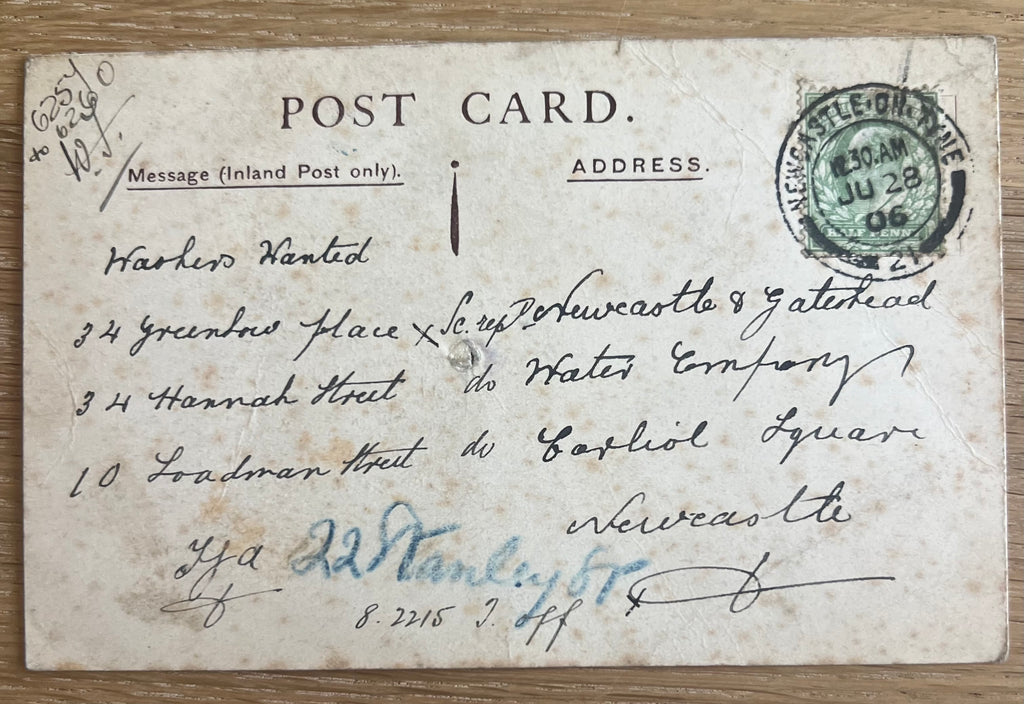 6254
to 6260
POST CARD.
Message (Inland Post only).
ADDRESS.
NEWCASTLE·ON·TYNE
12.30.AM
JU 28
06
21
HALF PENNY
Washers Wanted
34 Greenhow place x Sc. rep
34 Hannah Street do
10 Loadman Street do
Newcastle & Gateshead
Water Company
Carliol Square
Newcastle
22 Stanley St
8.2215 J. off